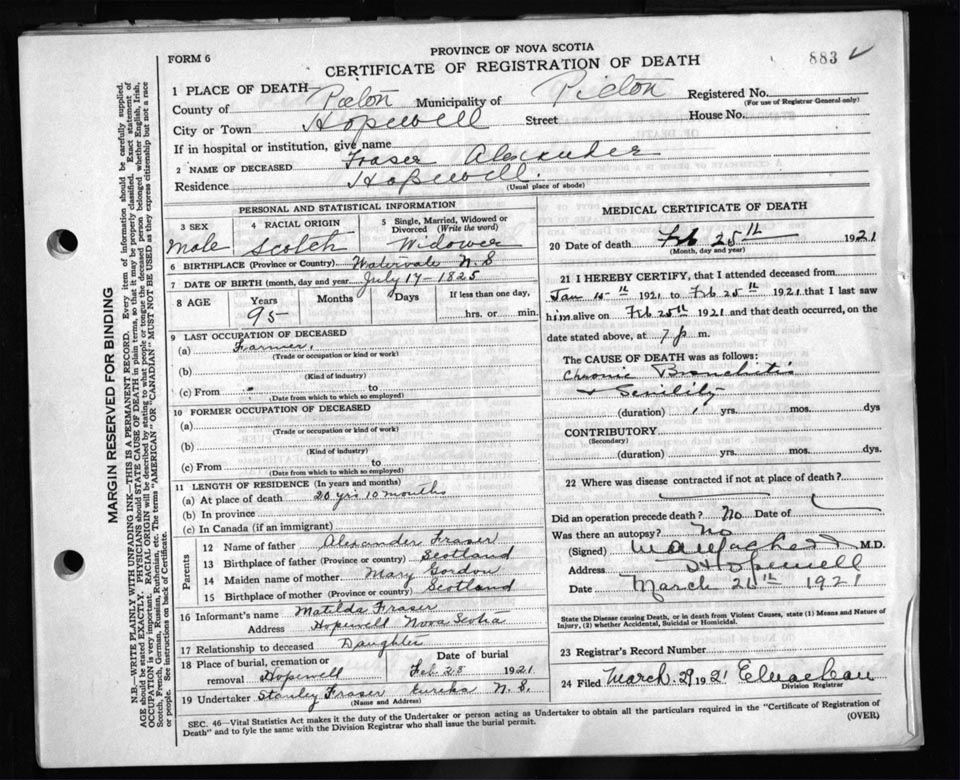 PROVINCE OF NOVA SCOTIA
FORM 6
CERTIFICATE OF REGISTRATION OF DEATH
883
1 PLACE OF DEATH
County of Pictou Municipality of Pictou Registered No.
(For use of Registrar General only)
City or Town Hopewell Street House No.
If in hospital or institution, give name
2 NAME OF DECEASED Fraser Alexander
Residence Hopewell.
(Usual place of abode)
PERSONAL AND STATISTICAL INFORMATION
3 SEX 4 RACIAL ORIGIN 5 Single, Married, Widowed or Divorced (Write the word)
Male Scotch Widower
6 BIRTHPLACE (Province or Country) Watervale N.S
7 DATE OF BIRTH (month, day and year) July 17-1825
8 AGE Years Months Days If less than one day,
95 hrs. or min.
9 LAST OCCUPATION OF DECEASED
(a) Farmer.
(Trade or occupation or kind or work)
(b)
(Kind of industry)
(c) From to
(Date from which to which so employed)
10 FORMER OCCUPATION OF DECEASED
(a)
(Trade or occupation or kind of work)
(b)
(Kind of industry)
(c) From to
(Date from which to which so employed)
11 LENGTH OF RESIDENCE (In years and months)
(a) At place of death 20 yrs 10 months
(b) In province
(c) In Canada (if an immigrant)
Parents
12 Name of father Alexander Fraser
13 Birthplace of father (Province or country) Scotland
14 Maiden name of mother Mary Gordon
15 Birthplace of mother (Province or country) Scotland
16 Informant's name Matilda Fraser
Address Hopewell Nova Scotia
17 Relationship to deceased Daughter
18 Place of burial, cremation or removal Hopewell Date of burial Feb 28 1921
19 Undertaker Stanley Fraser Eureka N.S.
(Name and Address)
MEDICAL CERTIFICATE OF DEATH
20 Date of death Feb 25th 1921
(Month, day and year)
21 I HEREBY CERTIFY, that I attended deceased from
Jan 1921 to Feb 25th 1921 that I last saw
him alive on Feb 25th 1921 and that death occurred, on the
date stated above, at 7 p m.
The CAUSE OF DEATH was as follows:
Chronic Bronchitis
+ Senility
(duration) 1 yrs. mos. dys
CONTRIBUTORY
(Secondary)
(duration) yrs. mos. dys.
22 Where was disease contracted if not at place of death?
Did an operation precede death? No Date of
Was there an autopsy? No
(Signed) M.D.
Address Hopewell
Date March 1921
State the Disease causing Death, or in death from Violent Causes, state (1) Means and Nature of
Injury, (2) whether Accidental, Suicidal or Homicidal.
23 Registrar's Record Number
24 Filed March 29 1921
Division Registrar
SEC. 46—Vital Statistics Act makes it the duty of the Undertaker or person acting as Undertaker to obtain all the particulars required in the "Certificate of Registration of
Death" and to fyle the same with the Division Registrar who shall issue the burial permit.
(OVER)
MARGIN RESERVED FOR BINDING
N.B.—WRITE PLAINLY WITH UNFADING INK—THIS IS A PERMANENT RECORD. Every item of information should be carefully supplied.
AGE should be stated EXACTLY. PHYSICIANS should STATE CAUSE OF DEATH in plain terms, so that it may be properly classified. Exact statement of
OCCUPATION is very important. RACIAL ORIGIN will be described by stating to what people or tongue the deceased person belonged whether English, Irish,
Scotch, French, German, Russian, Ruthenian, etc. The terms "AMERICAN" OR "CANADIAN" MUST NOT BE USED as they express citizenship but not a race
or people. See instructions on back of Certificate.